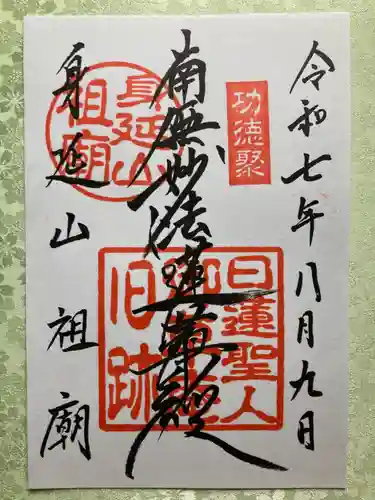 令和七年八月九日
功徳聚
南無妙法蓮華経
身延山
祖廟
日蓮聖人
旧跡
身延山祖廟